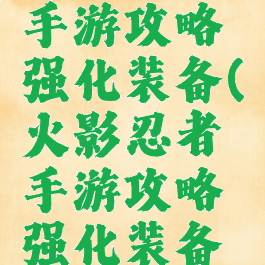 手游攻略
强化装备(
火影忍者
手游攻略
强化装备